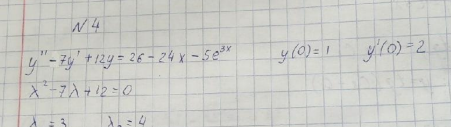 № 4
y'' - 7y' + 12y = 26 - 24x - 5e^{3x} y(0) = 1 y'(0) = 2
λ² - 7λ + 12 = 0
λ = 3 λ₂ = 4